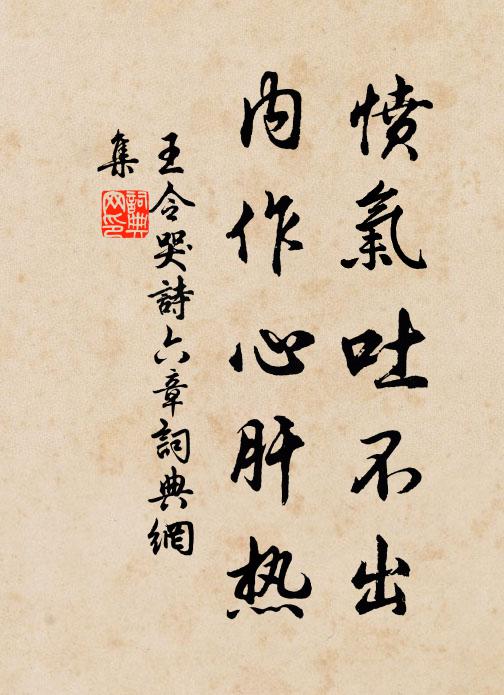 憤氣吐不出
内作心肝热
王令哭詩六章詞典網
集
詞典网印